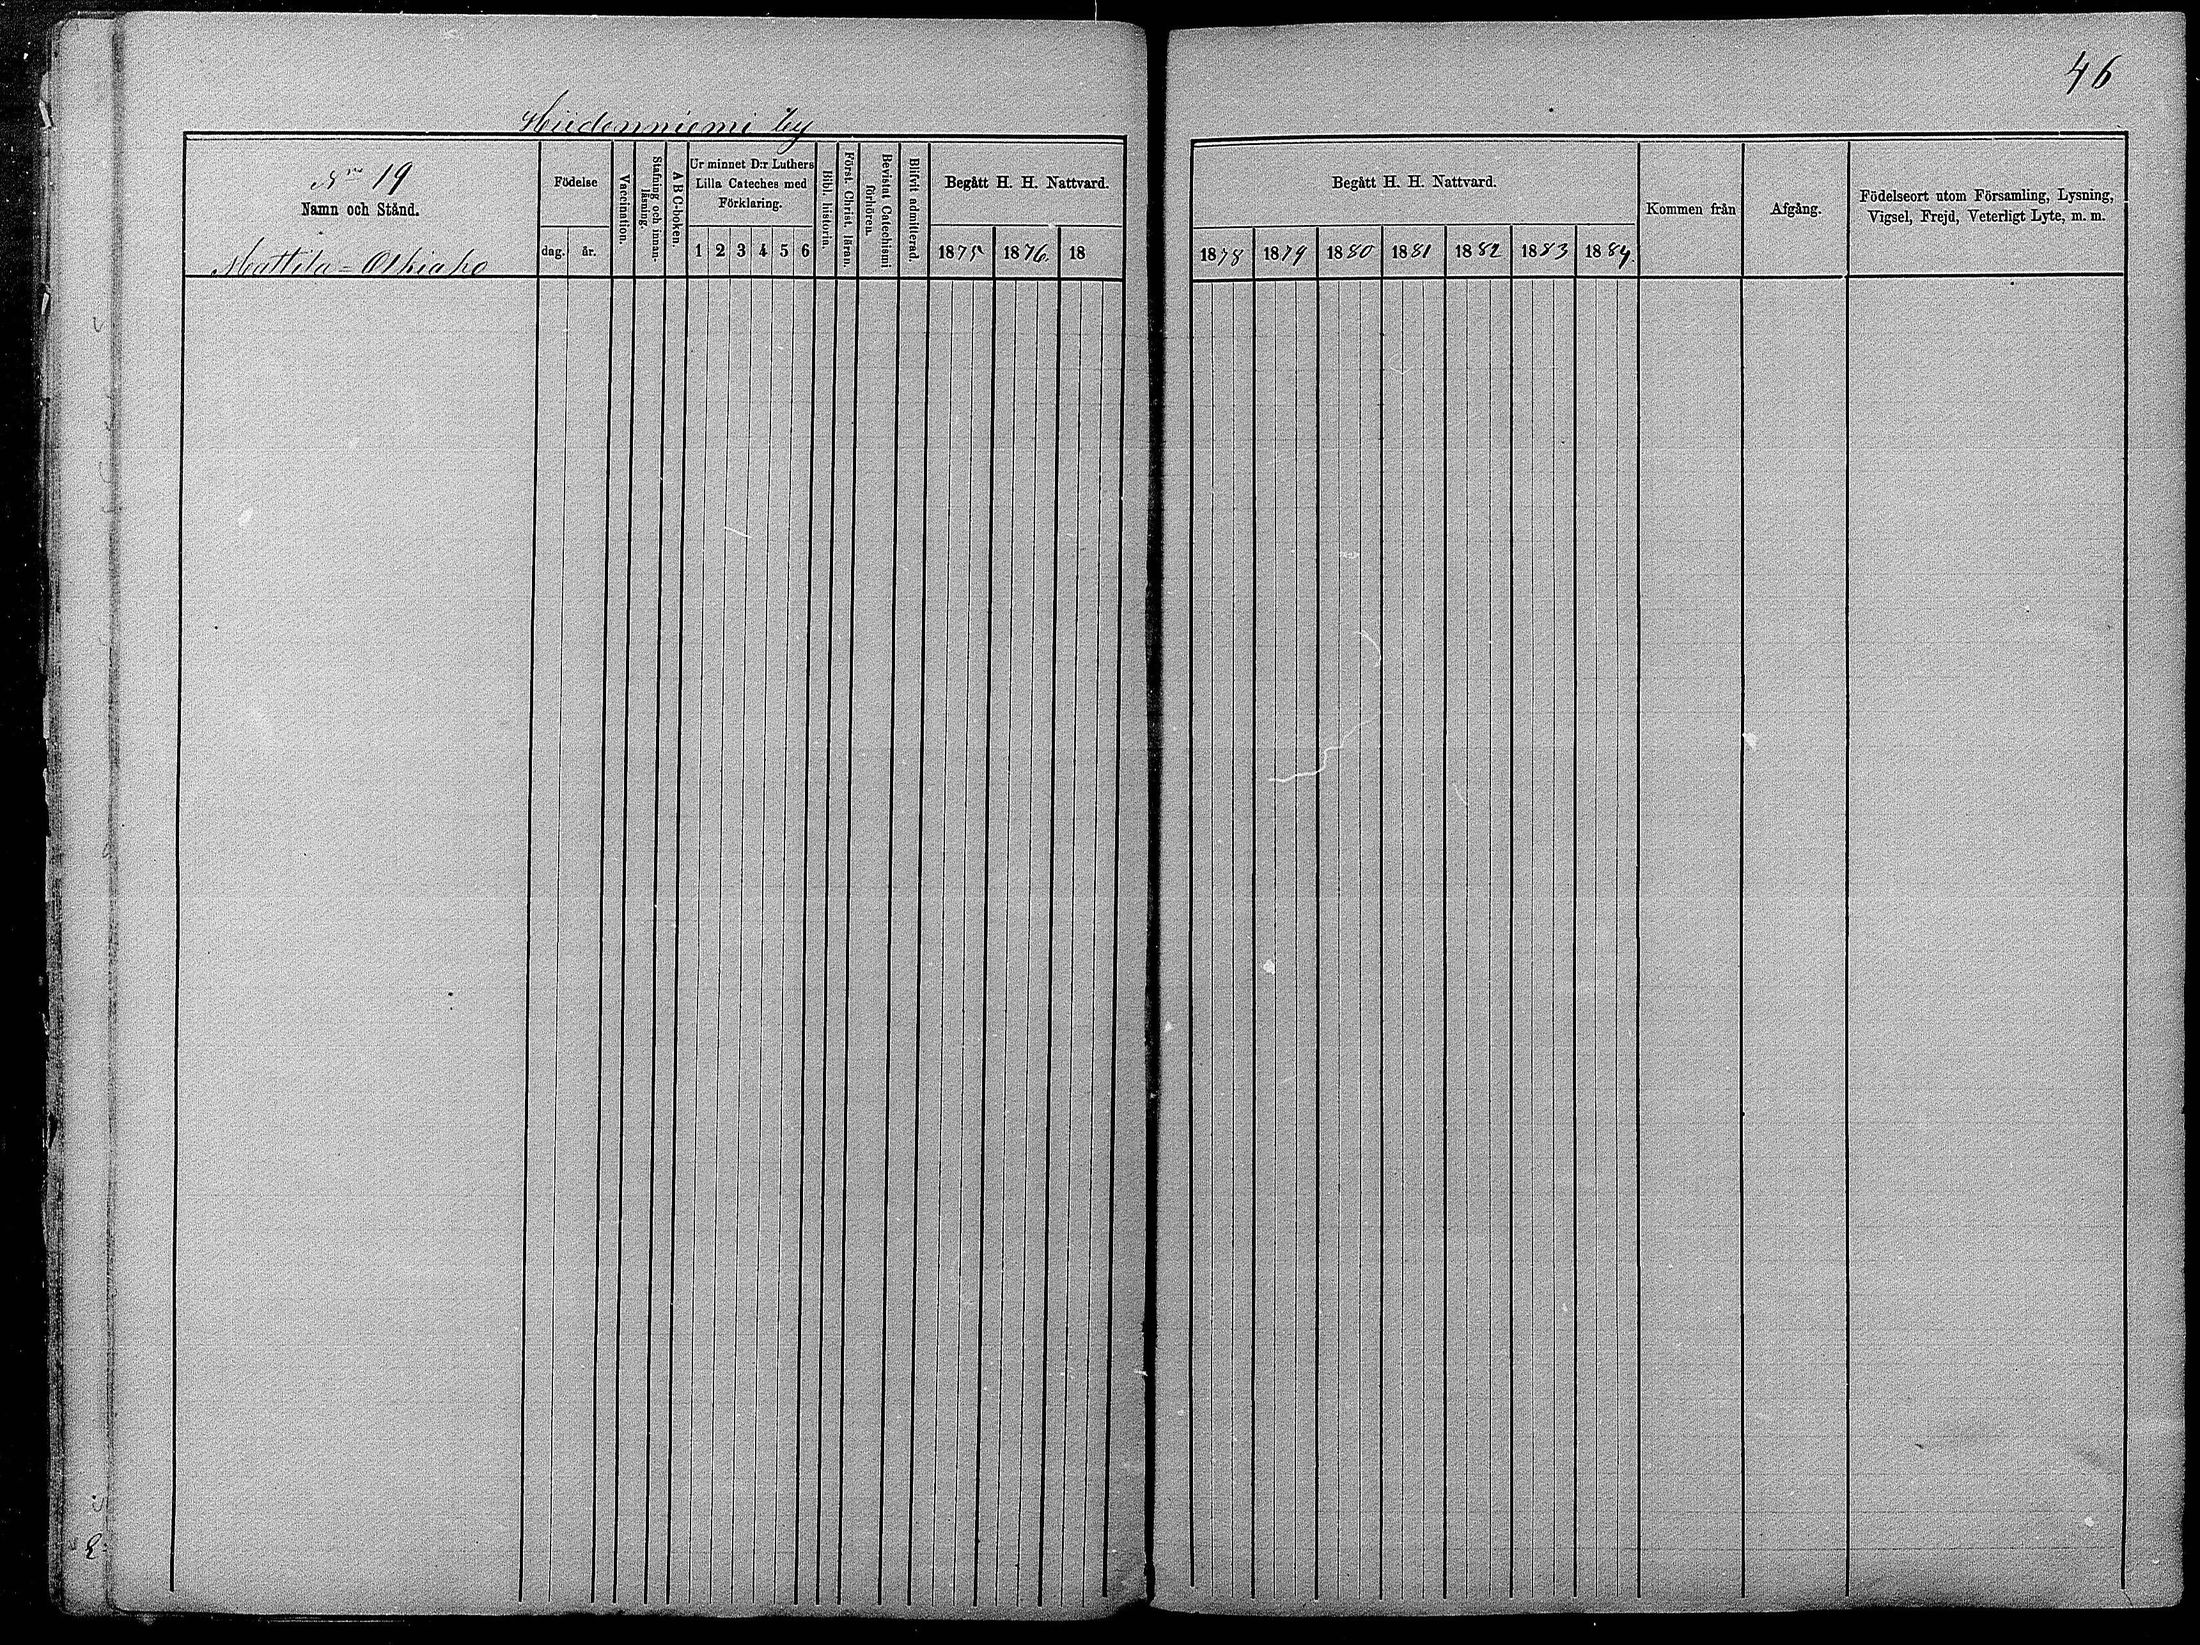 46
Hiidenniemi by
Nro 19
Namn och Stånd.
Mattila=Olkiaho
Födelse
dag. år.
Vaccination.
Stafning och innan-
läsning.
A B C-boken.
Ur minnet D:r Luthers
Lilla Cateches med
Förklaring.
1 2 3 4 5 6
Bibl. historin.
Först. Christ. läran.
Bevistat Catechismi
förhören.
Blifvit admitterad.
Begått H. H. Nattvard.
1875 1876. 18
Begått H. H. Nattvard.
1878 1879 1880 1881 1882 1883 1884.
Kommen från
Afgång.
Födelseort utom Församling, Lysning,
Vigsel, Frejd, Veterligt Lyte, m. m.